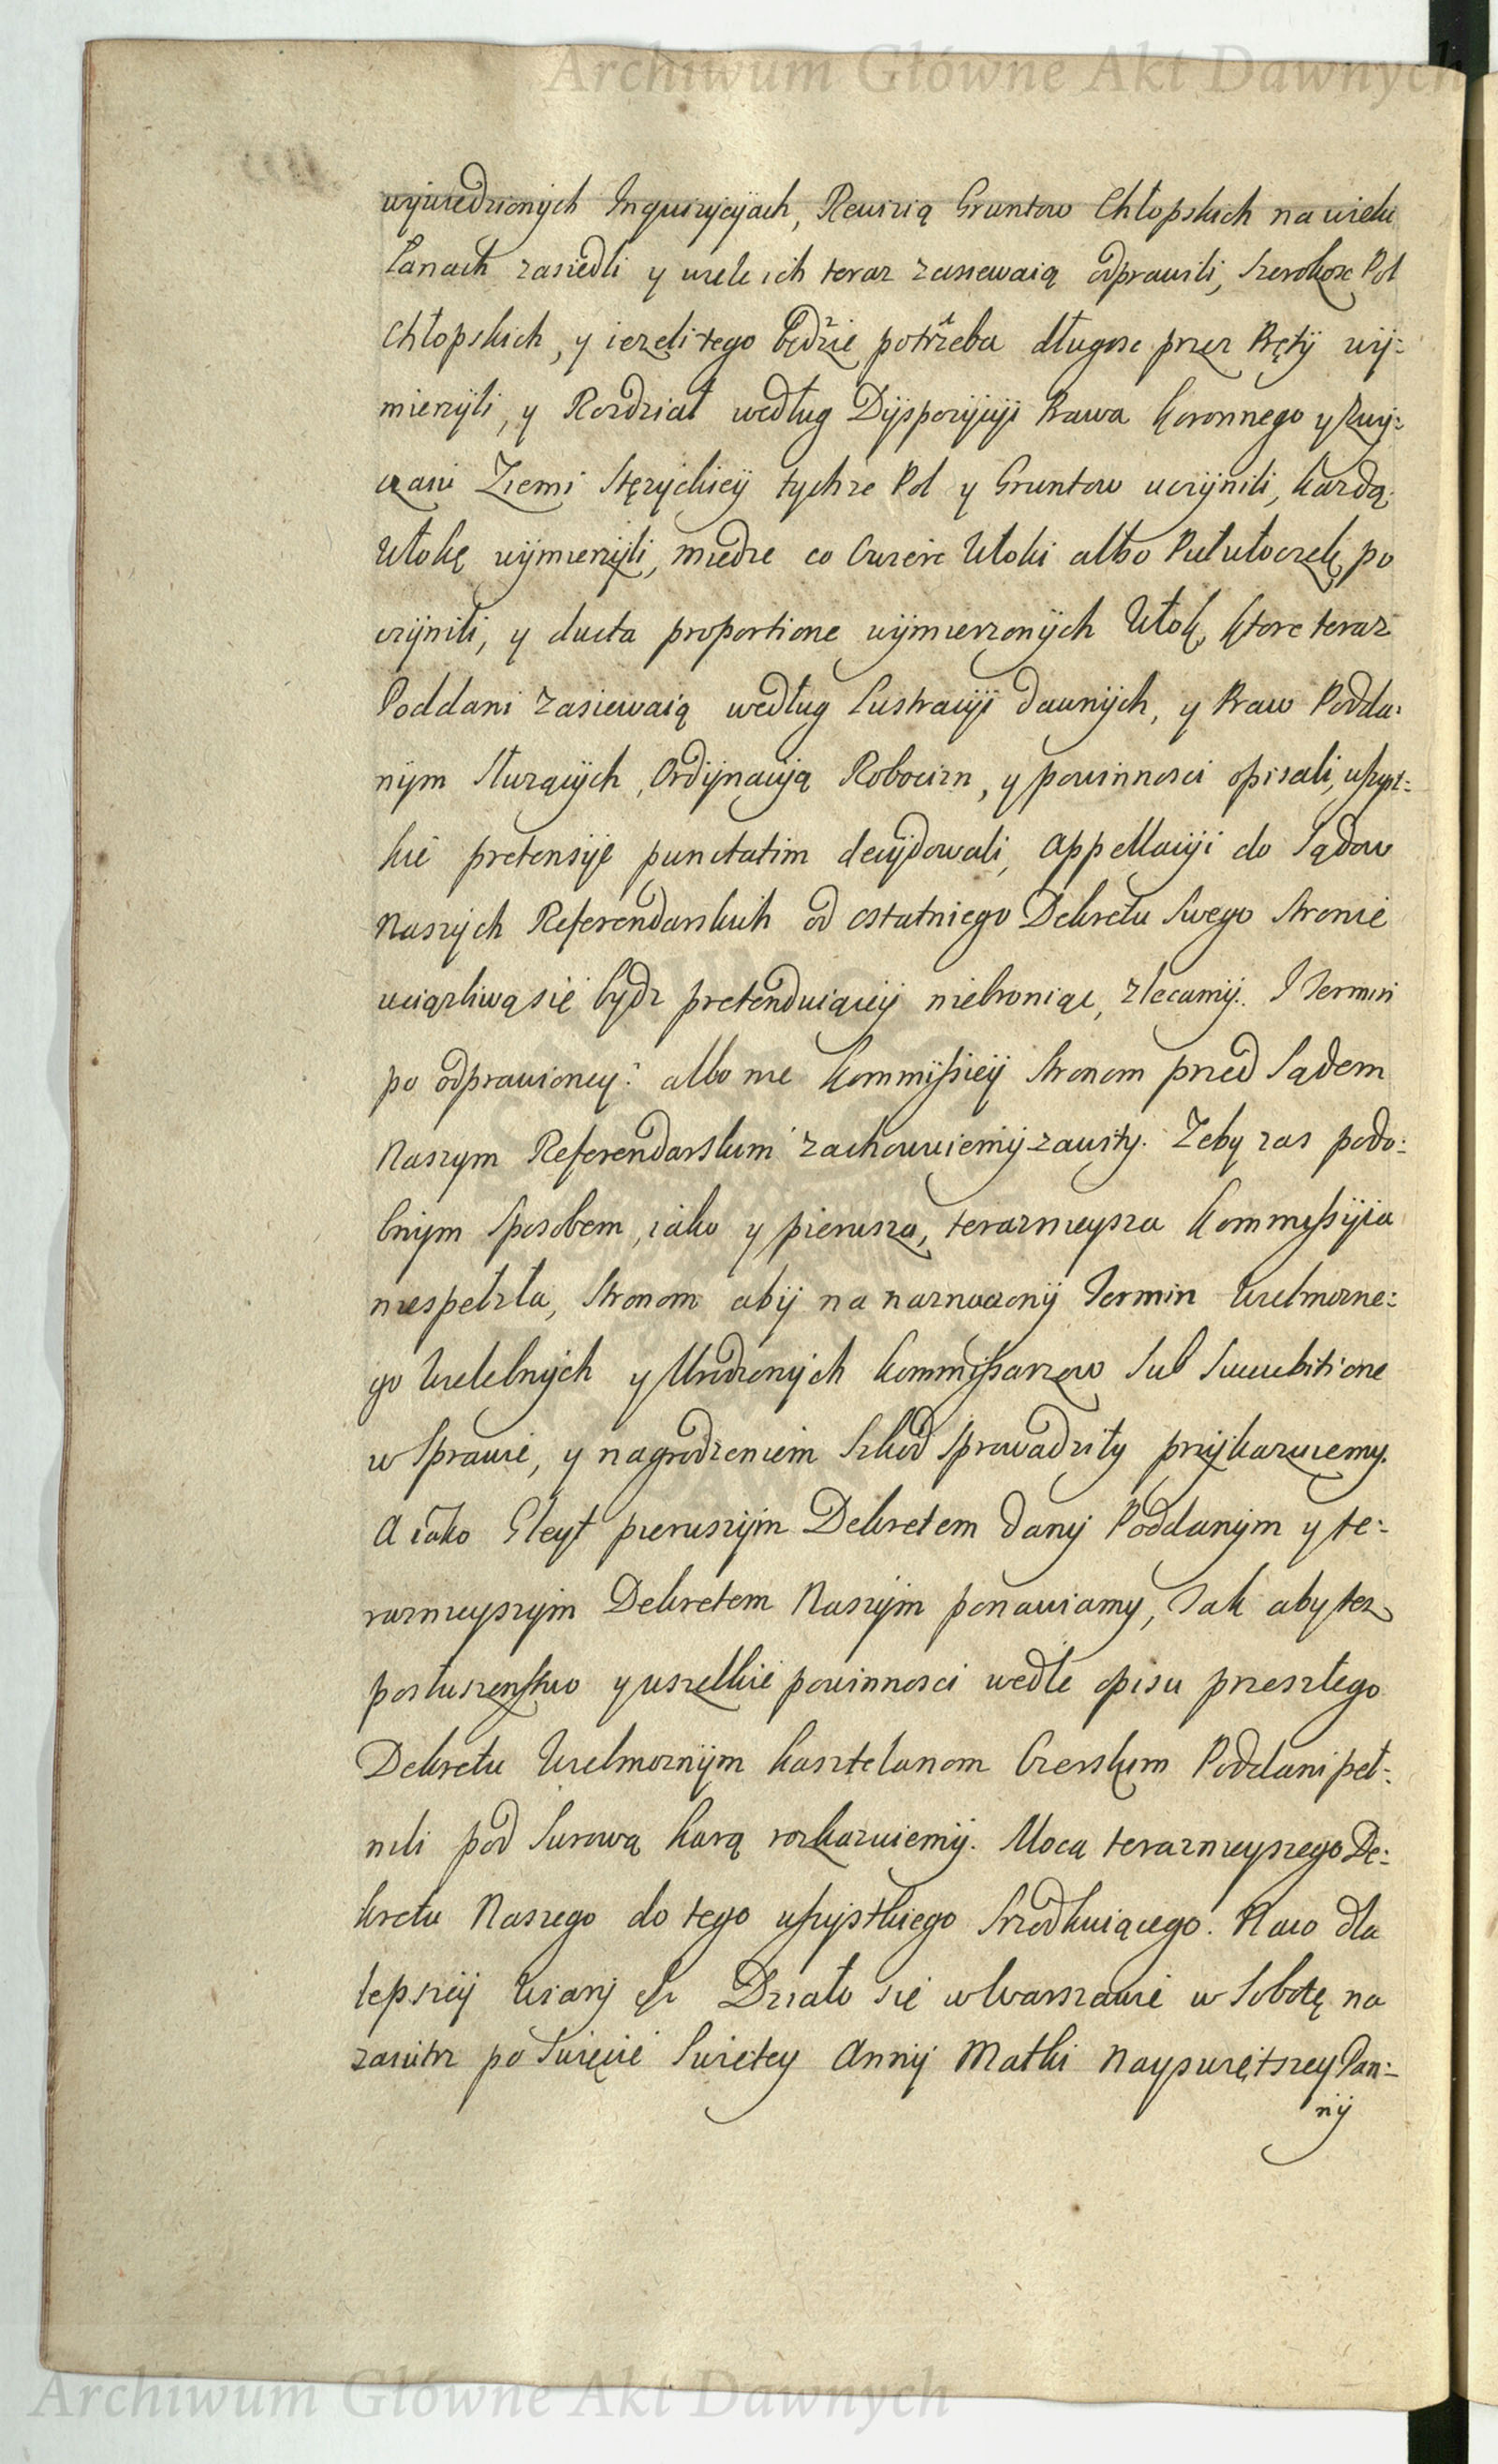 Archiwum Główne Akt Dawnych
wywiedzionych Inquizycyach, Rewizią Gruntow Chłopskich na wielu
Łanach zasiedli y wiele ich teraz zasiewaią odprawili, Szerokosc Pol
Chłopskich, y iezeli tego będzie potrzeba długosc przez Pręty wy:
mierzyli, y Rozdział według Dyspozycyi Prawa Koronnego y Zwy:
czaiu Ziemi Stęzyckiey tychze Pol y Gruntow uczynili, kazdą
Włokę wymierzyli, miedze co Cwierc Włoki albo Puł włoczek po
czynili, y ducta proportione wymierzonych Włok, ktore teraz
Poddani zasiewaią według Lustracyi dawnych, y Praw Podda:
nym Słuzących, Ordynacyą Robocizn, y powinnosci opisali, wszyst:
kie pretensye punctatim decydowali, Appellacyi do Sądow
Naszych Referendarskich od ostatniego Dekretu Swego Stronie
uciązliwą się bydz pretenduiącey niebroniąc, zlecamy. I Termin
po odprawioney: albo nie Kommissiey Stronom przed Sądem
Naszym Referendarskim zachowuiemy zawity. Zeby zas podo:
bnym Sposobem, iako y pierwsza, terazniejsza Kommissyia
niespełzła, Stronom aby na naznaczony Termin Wielmozne:
go Wielebnych y Urodzonych Kommissarzow Sub Succubitione
w Sprawie, y nagrodzeniem Szkod Sprowadziły przykazuiemy.
A iako Gleyt pierwszym Dekretem dany Poddanym y te:
raznieyszym Dekretem Naszym ponawiamy, Tak aby tez
posłuszenstwo y wszelkie powinnosci wedle opisu przeszłego
Dekretu Wielmoznym Kasztelanom Czerskim Poddani peł:
nili pod Surową karą rozkazuiemy. Mocą teraznieyszego De:
kretu Naszego do tego wszystkiego Srzodkuiącego. Naco dla
lepszey Wiary etc Działo się w Warszawie w Sobotę na
zaiutrz po Swięcie Swietey Anny Matki Nayswiętszey Pan:
ny
Archiwum Główne Akt Dawnych